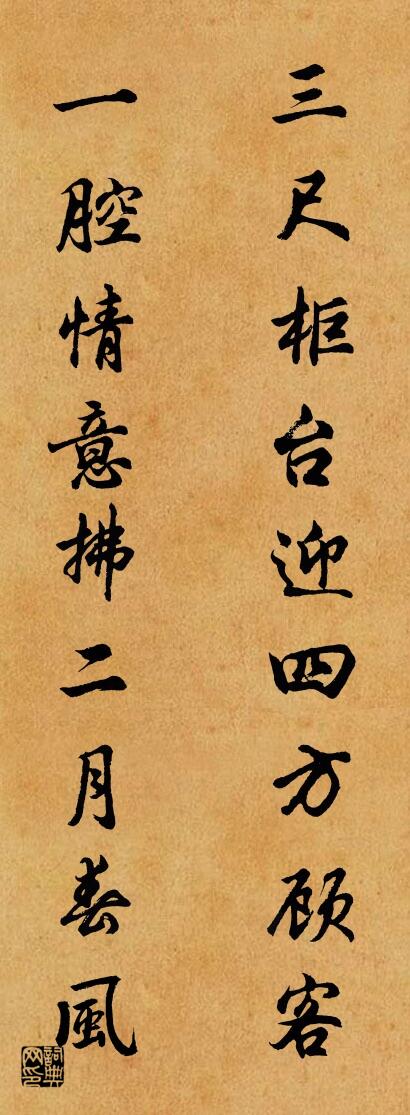 三尺柜台迎四方顾客
一腔情意拂二月春風
詞典网印